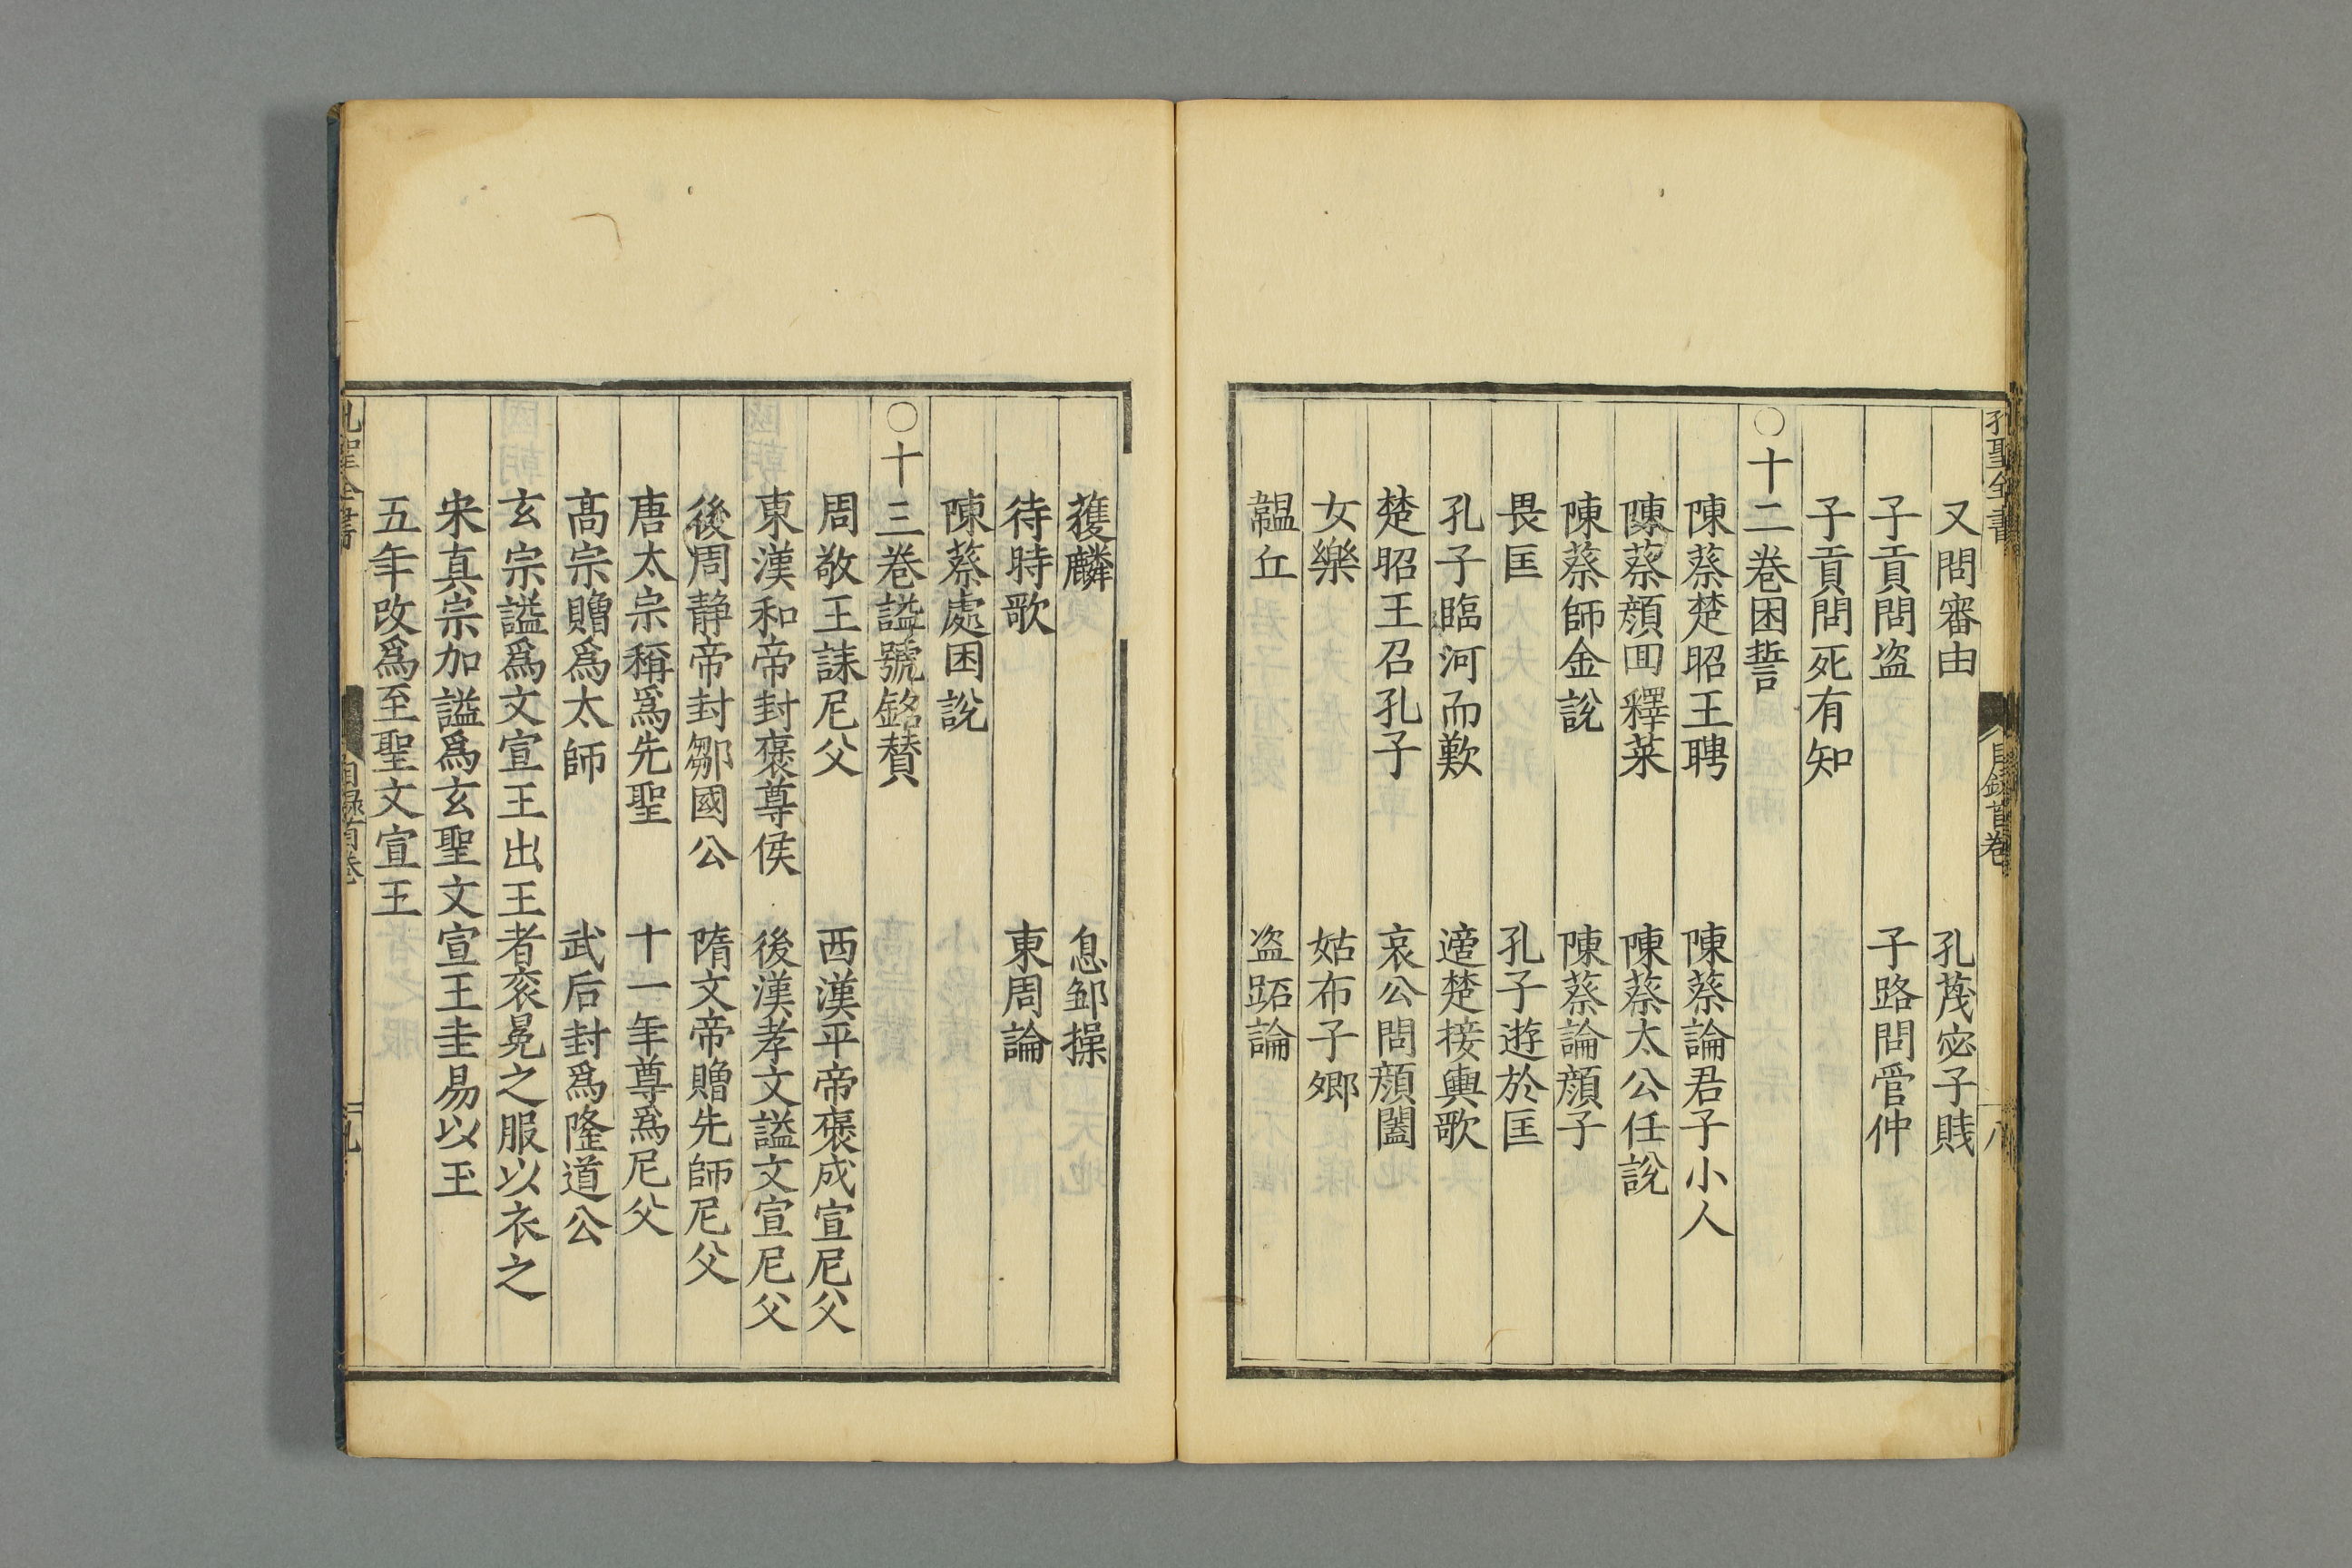 孔聖全書
目錄首卷
八
又問審由　孔蔑宓子賤
子貢問盜　子路問管仲
子貢問死有知
○十二卷困誓
陳蔡楚昭王聘　陳蔡論君子小人
陳蔡顔囬釋菜　陳蔡太公任說
陳蔡師金說　陳蔡論顔子
畏匡　孔子遊於匡
孔子臨河而歎　適楚接輿歌
楚昭王召孔子　哀公問顔闔
女樂　姑布子鄉
韞丘　盜跖論
獲麟　息鄒操
待時歌　東周論
陳蔡處困說
○十三卷謚號銘賛
周敬王誄尼父　西漢平帝褒成宣尼父
東漢和帝封褒尊侯　後漢孝文謚文宣尼父
後周静帝封鄒國公　隋文帝贈先師尼父
唐太宗稱爲先聖　十一年尊爲尼父
髙宗贈爲太師　武后封爲隆道公
玄宗謚爲文宣王出王者衮冕之服以衣之
宋真宗加謚爲玄聖文宣王圭易以玉
五年改爲至聖文宣王
孔聖全書
目錄首卷
九